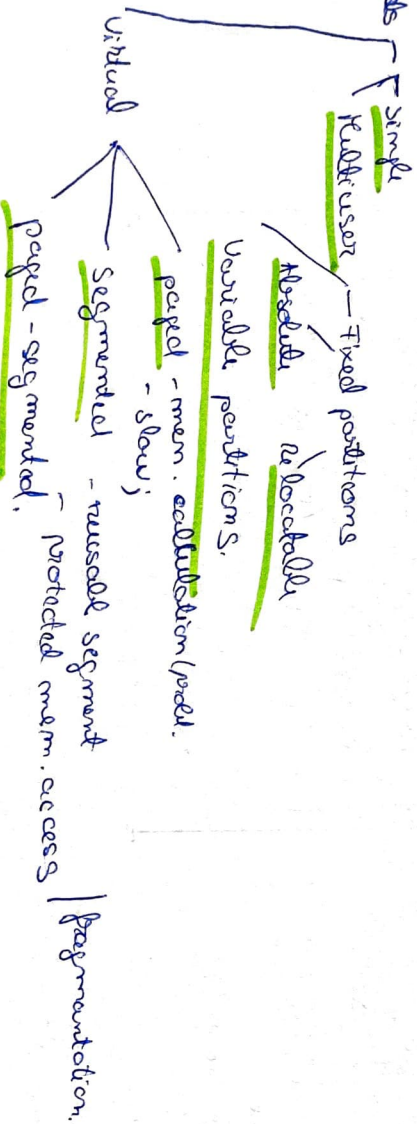 Simple
Multiuser - Fixed partitions
Absolute Relocatable
Variable partitions.
Virtual
paged - mem. calculation/prot.
- slow;
segmented - reusable segment
- protected mem. access / fragmentation.
paged - segmented.